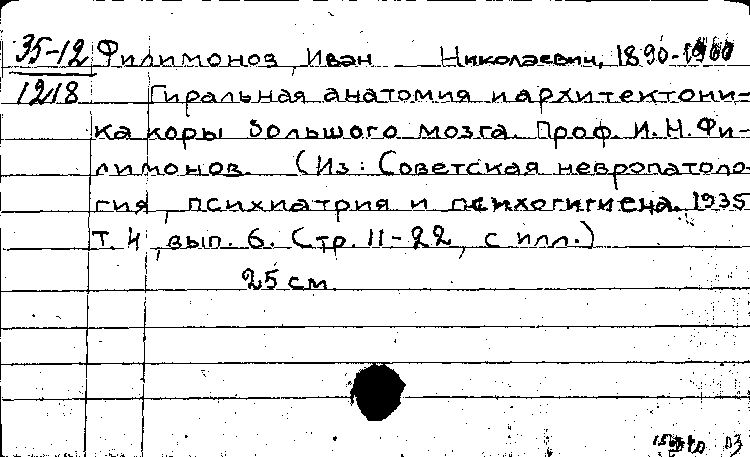 35-12 Филимонов, Иван Николаевич, 1890-
1218 Гиральная анатомия и архитектони-
ка коры большого мозга. Проф. И. Н. Фи-
лимонов. (Из: Советская невропатоло-
гия, психиатрия и психогигиена. 1935
Т. 4, вып. 6. Стр. 11-22, с илл.)
25 см.